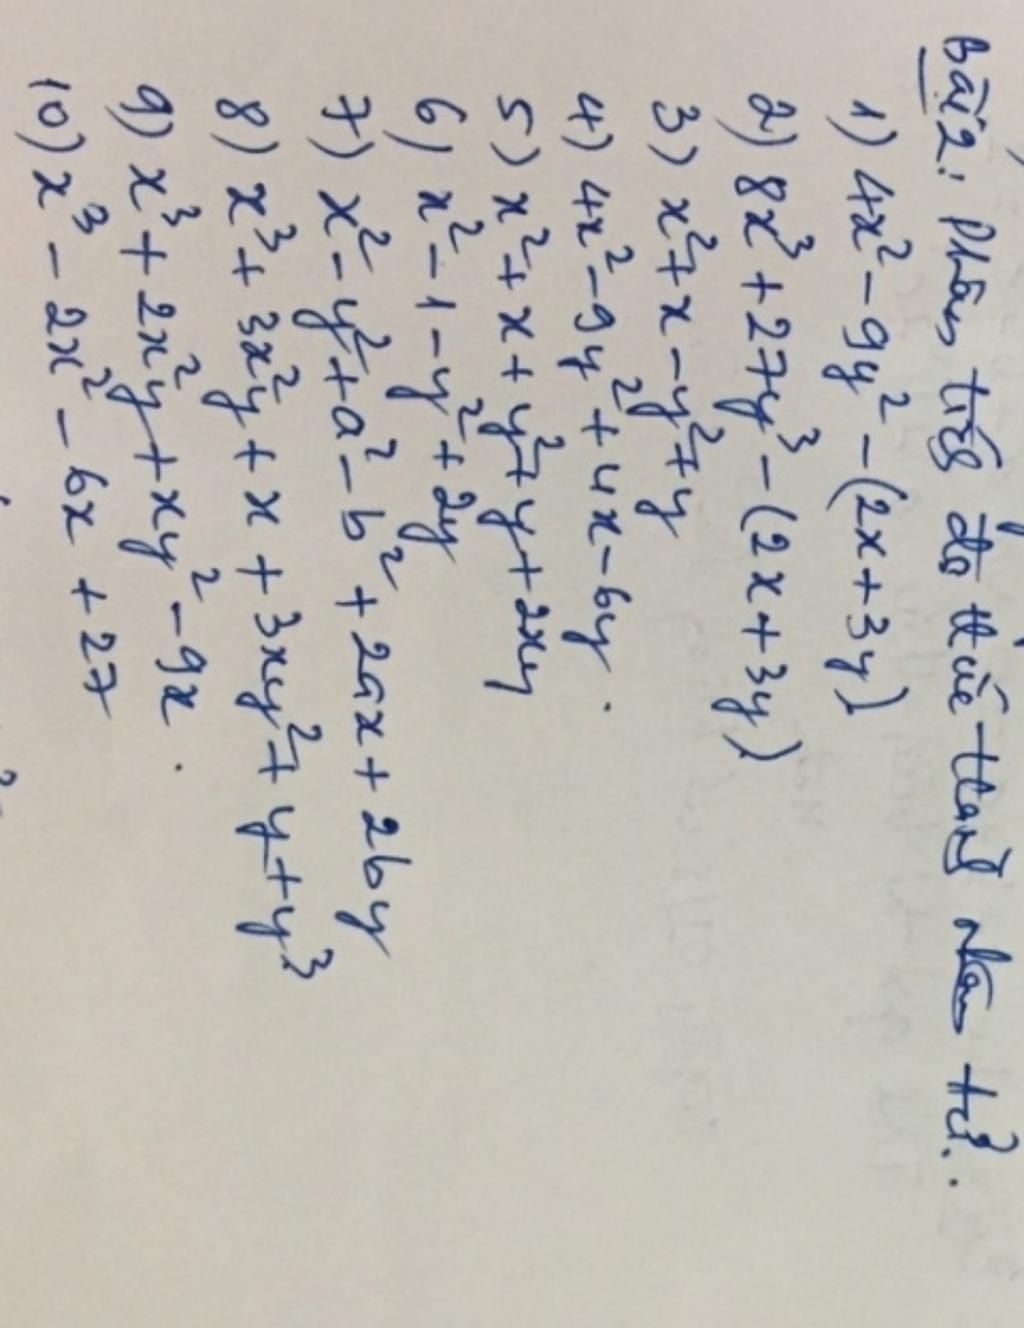 Bài 2: Phân tích đa thức thành nhân tử.
1) 4x² - 9y² - (2x + 3y)
2) 8x³ + 27y³ - (2x + 3y)
3) x² + x - y² + y
4) 4x² - 9y² + 4x - 6y.
5) x² + x + y² + y + 2xy
6) x² - 1 - y² + 2y
7) x² - y² + a² - b² + 2ax + 2by
8) x³ + 3x²y + x + 3xy² + y + y³
9) x³ + 2x²y + xy² - 9x.
10) x³ - 2x² - 6x + 27